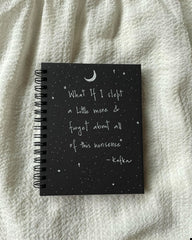 What If I slept
a little more &
forget about all
of this nonsense"
- Kafka